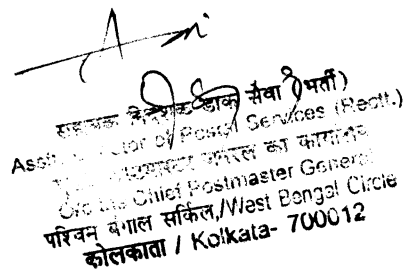 सहायक निदेशक डाक सेवा (भर्ती)
Asstt. Director of Postal Services (Rectt.)
जनरल का कार्यालय
O/o the Chief Postmaster General
पश्चिम बंगाल सर्किल,/West Bengal Circle
कोलकाता / Kolkata- 700012